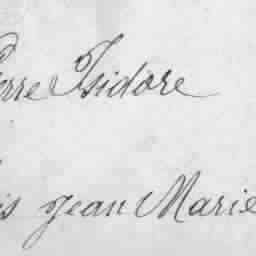 erre Isidore
is Jean Marie